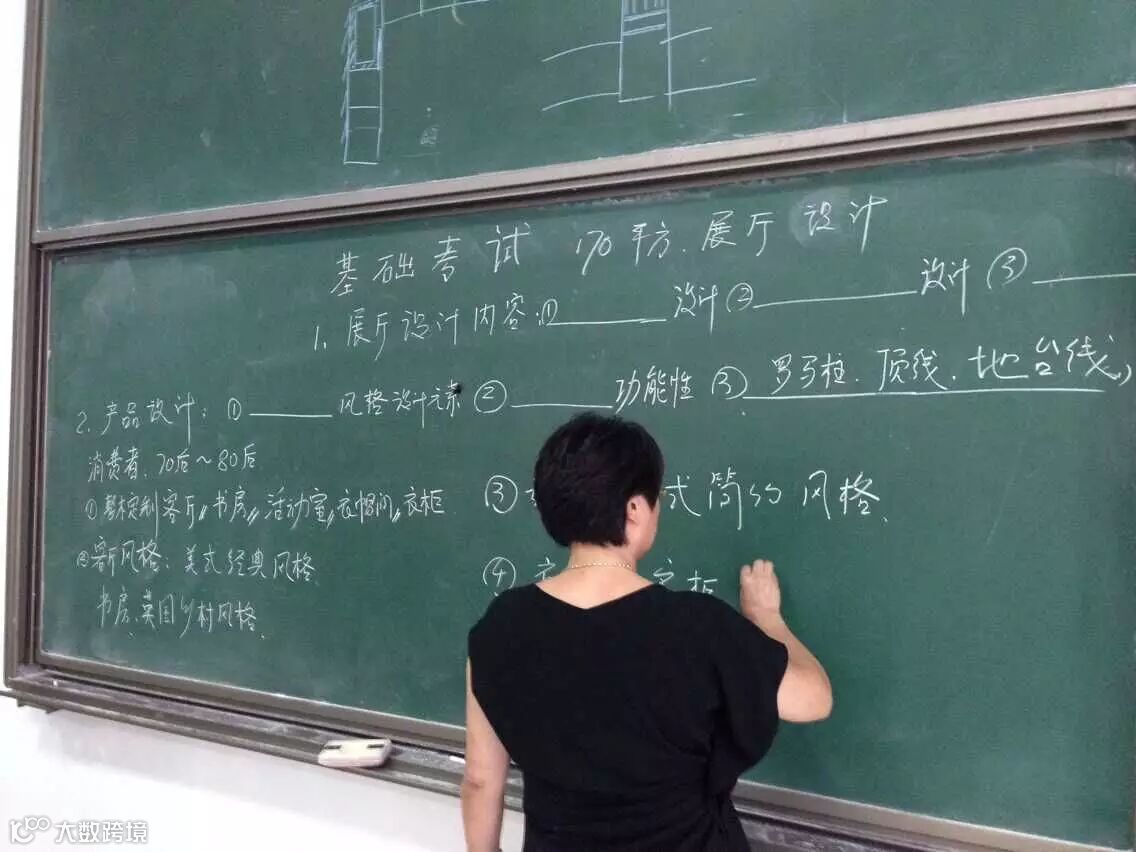 基础考试 170平方.展厅设计
1、展厅设计内容:①______设计②______设计③______
2、产品设计:①______风格设计元素②______功能性③罗马柱、顶线、地台线,
消费者、70后~80后
①整木定制客厅、书房、活动室、衣帽间、衣柜
②客厅风格:美式经典风格
书房、英国乡村风格
③ 式简约风格.
④ 柜
大数跨境